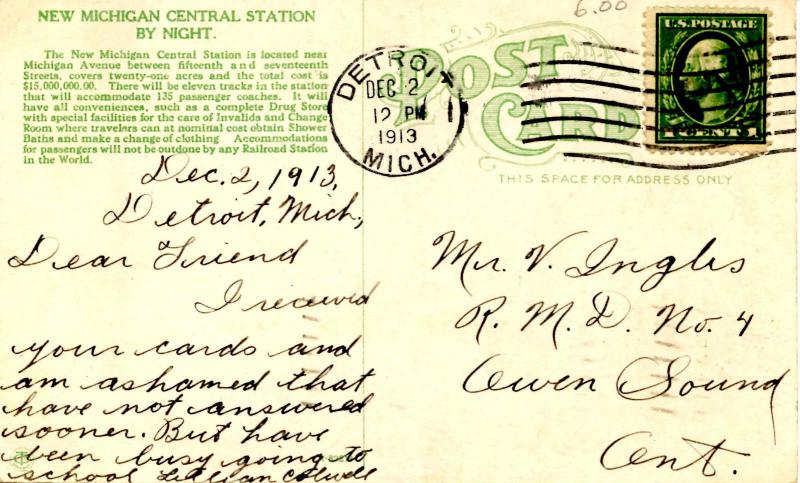 NEW MICHIGAN CENTRAL STATION
BY NIGHT.
The New Michigan Central Station is located near
Michigan Avenue between fifteenth and seventeenth
Streets, covers twenty-one acres and the total cost is
$15,000,000.00. There will be eleven tracks in the station
that will accommodate 135 passenger coaches. It will
have all conveniences, such as a complete Drug Store
with special facilities for the care of Invalids and Change
Room where travelers can at nominal cost obtain Shower
Baths and make a change of clothing Accommodations
for passengers will not be outdone by any Railroad Station
in the World.
6.00
U.S. POSTAGE
CENT
DETROIT
DEC 2
12 PM
1913
MICH.
POST
CARD
THIS SPACE FOR ADDRESS ONLY
Dec. 2, 1913,
Detroit, Mich.,
Dear Friend
I received
your cards and
am ashamed that
have not answered
sooner. But have
been busy going to
school Lillian
Mr. V. Inglis
R. M. D. No. 4
Owen Sound
Ont.